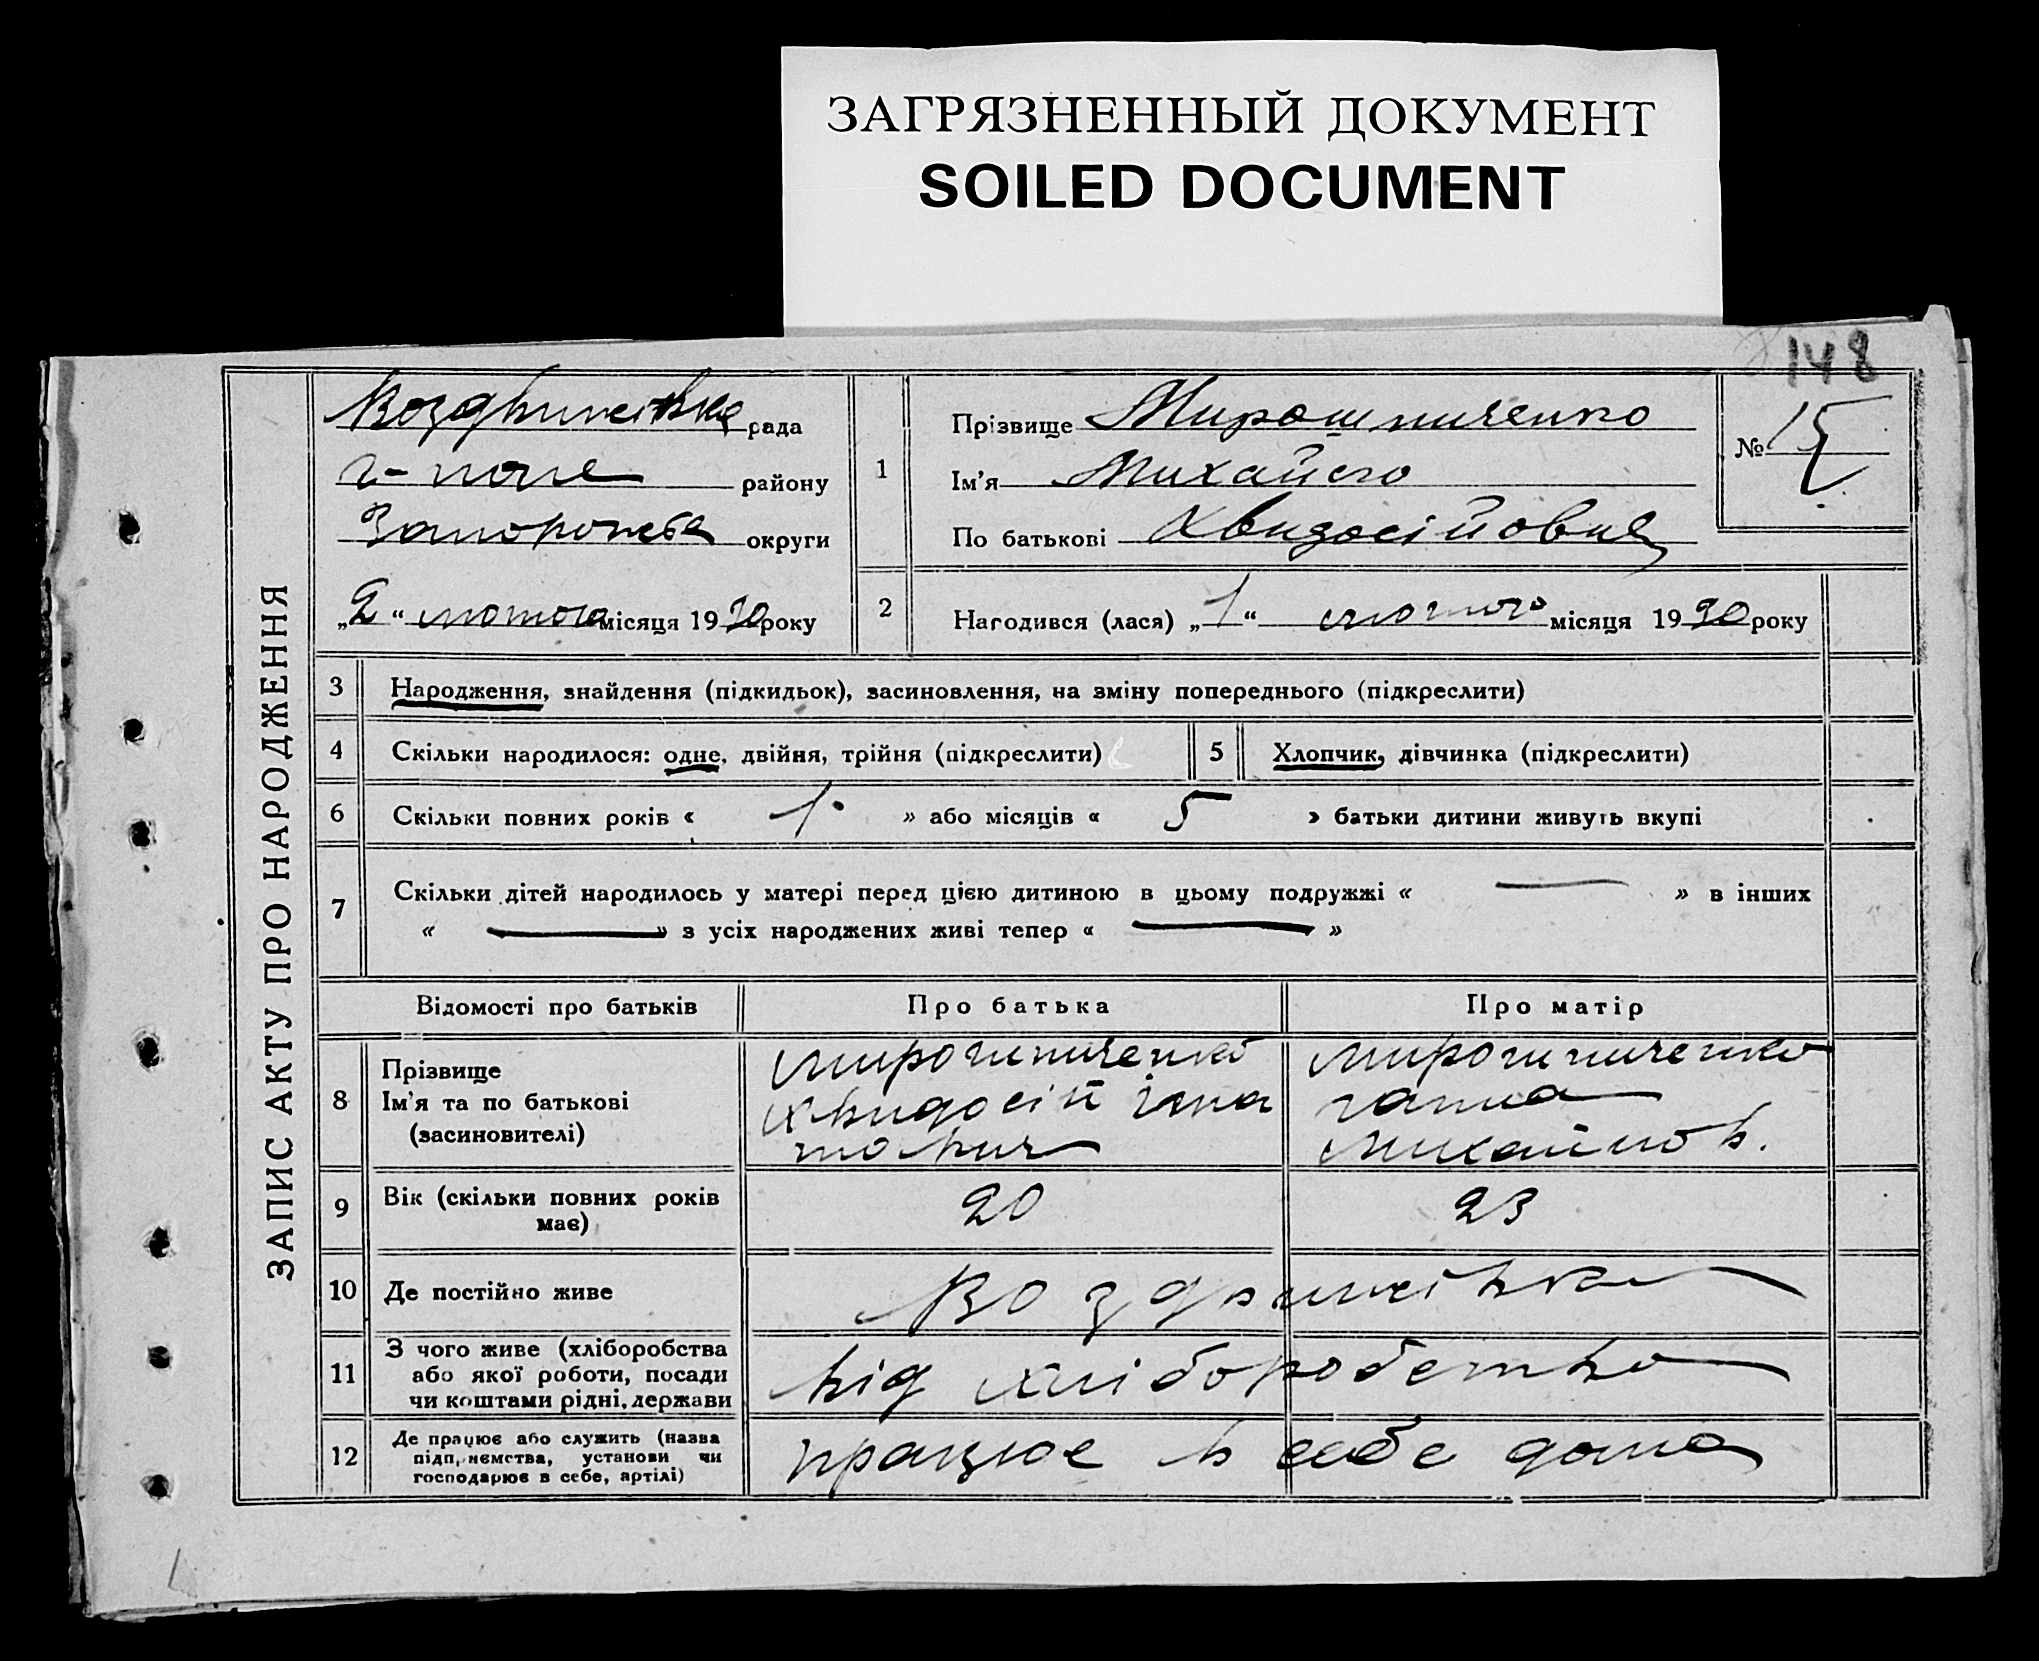 ЗАГРЯЗНЕННЫЙ ДОКУМЕНТ
SOILED DOCUMENT
148
ЗАПИС АКТУ ПРО НАРОДЖЕННЯ
Воздвижівка рада
г-поле району
Запорожська округи
„2“ лютого місяця 1930 року
1
Прізвище Мирошниченко
Ім'я Михайло
По батькові Хвидосійович
№ 15
2 Народився (лася) „1“ лютого місяця 1930 року
3 Народження, знайдення (підкидьок), засиновлення, на зміну попереднього (підкреслити)
4 Скільки народилося: одне, двійня, трійня (підкреслити)
5 Хлопчик, дівчинка (підкреслити)
6 Скільки повних років « 1 » або місяців « 5 » батьки дитини живуть вкупі
7 Скільки дітей народилось у матері перед цією дитиною в цьому подружжі « — » в інших
« — » з усіх народжених живі тепер « — »
Відомості про батьків Про батька Про матір
8 Прізвище
Ім'я та по батькові
(засиновителі)
Мирошниченко
Хвидосій Ігна
тович
Мирошниченко
Ганна
Михайлов.
9 Вік (скільки повних років
має)
20 23
10 Де постійно живе Воздвижівка
11 З чого живе (хліборобства
або якої роботи, посади
чи коштами рідні, держави
від хліборобства
12 Де працює або служить (назва
підприємства, установи чи
господарює в себе, артілі)
працює в себе дома